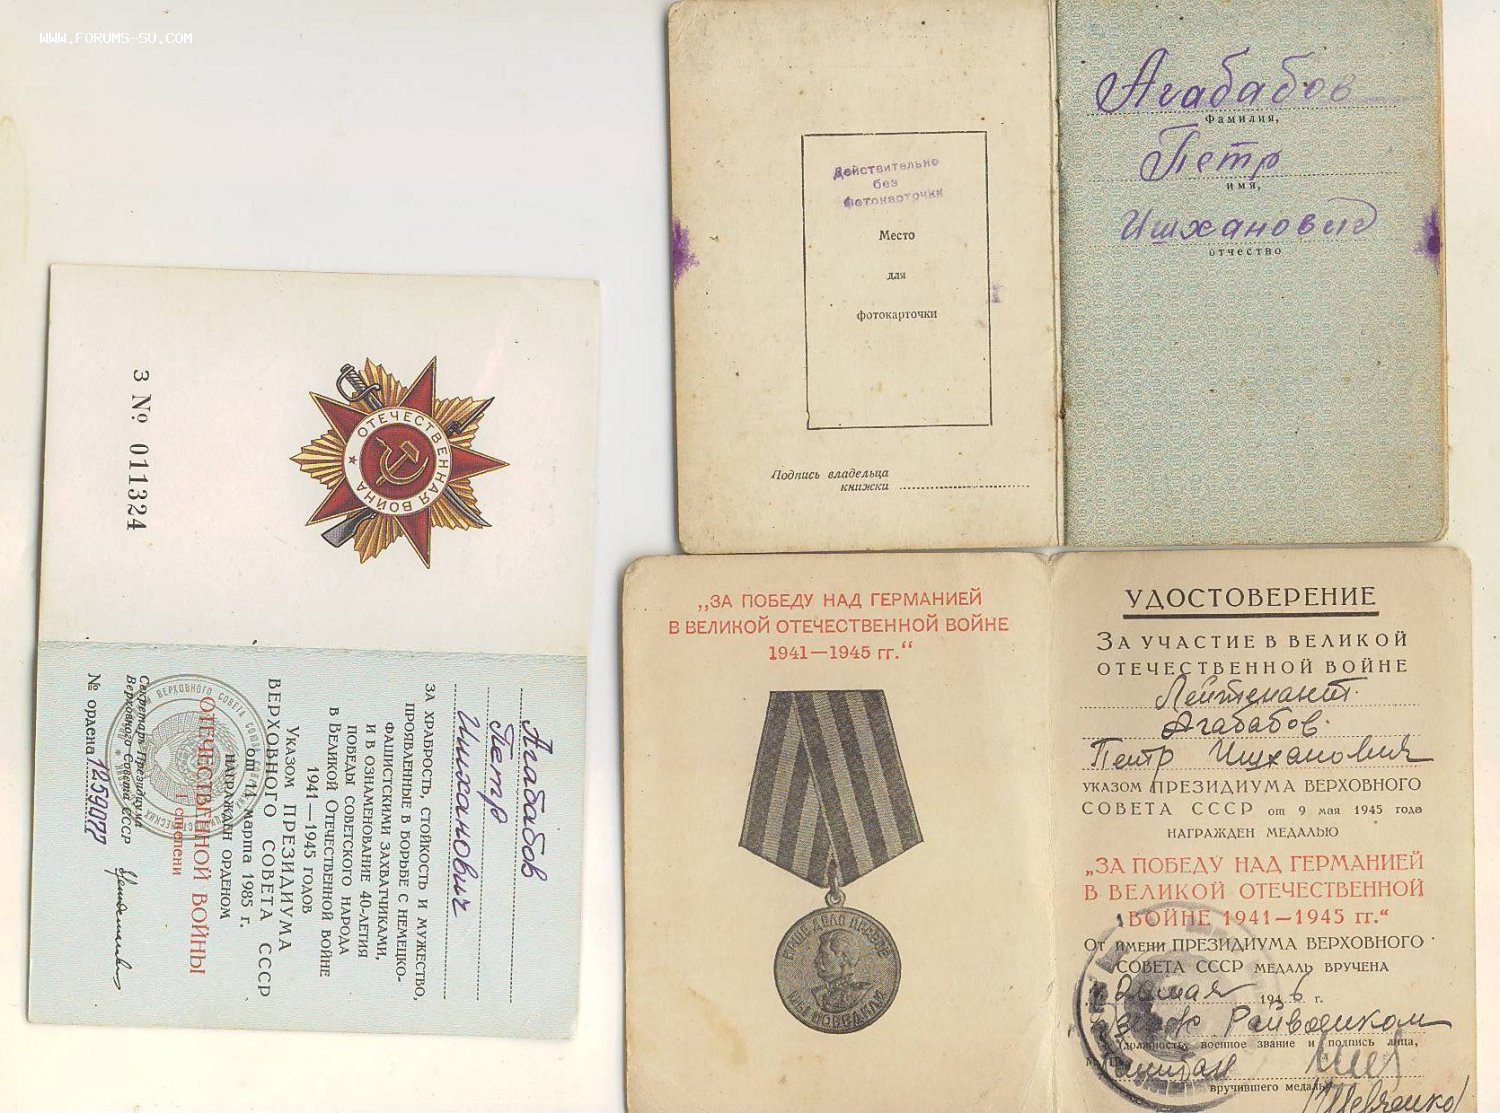 WWW.FORUMS-SU.COM
Действительно
без
фотокарточки
Место
для
фотокарточки
Подпись владельца
книжки
Агабабов
Фамилия,
Петр
имя,
Ишханович
отчество
ОТЕЧЕСТВЕННАЯ ВОЙНА
З № 011324
Агабабов
Петр
Ишханович
ЗА ХРАБРОСТЬ, СТОЙКОСТЬ И МУЖЕСТВО,
ПРОЯВЛЕННЫЕ В БОРЬБЕ С НЕМЕЦКО-
ФАШИСТСКИМИ ЗАХВАТЧИКАМИ,
И В ОЗНАМЕНОВАНИЕ 40-ЛЕТИЯ
ПОБЕДЫ СОВЕТСКОГО НАРОДА
В ВЕЛИКОЙ ОТЕЧЕСТВЕННОЙ ВОЙНЕ
1941—1945 ГОДОВ
УКАЗОМ ПРЕЗИДИУМА
ВЕРХОВНОГО СОВЕТА СССР
от 11 марта 1985 г.
НАГРАЖДЕН ОРДЕНОМ
ОТЕЧЕСТВЕННОЙ ВОЙНЫ
степени
Секретарь Президиума
Верховного Совета СССР
№ ордена
„ЗА ПОБЕДУ НАД ГЕРМАНИЕЙ
В ВЕЛИКОЙ ОТЕЧЕСТВЕННОЙ ВОЙНЕ
1941—1945 гг.“
НАШЕ ДЕЛО ПРАВОЕ
МЫ ПОБЕДИЛИ
УДОСТОВЕРЕНИЕ
ЗА УЧАСТИЕ В ВЕЛИКОЙ
ОТЕЧЕСТВЕННОЙ ВОЙНЕ
Лейтенант
Агабабов
Петр Ишханович
УКАЗОМ ПРЕЗИДИУМА ВЕРХОВНОГО
СОВЕТА СССР от 9 мая 1945 года
НАГРАЖДЕН МЕДАЛЬЮ
„ЗА ПОБЕДУ НАД ГЕРМАНИЕЙ
В ВЕЛИКОЙ ОТЕЧЕСТВЕННОЙ
ВОЙНЕ 1941—1945 гг.“
От имени ПРЕЗИДИУМА ВЕРХОВНОГО
СОВЕТА СССР МЕДАЛЬ ВРУЧЕНА
мая 1946 г.
Райвоенком
(должность, военное звание и подпись лица,
вручившего медаль)
Шевченко